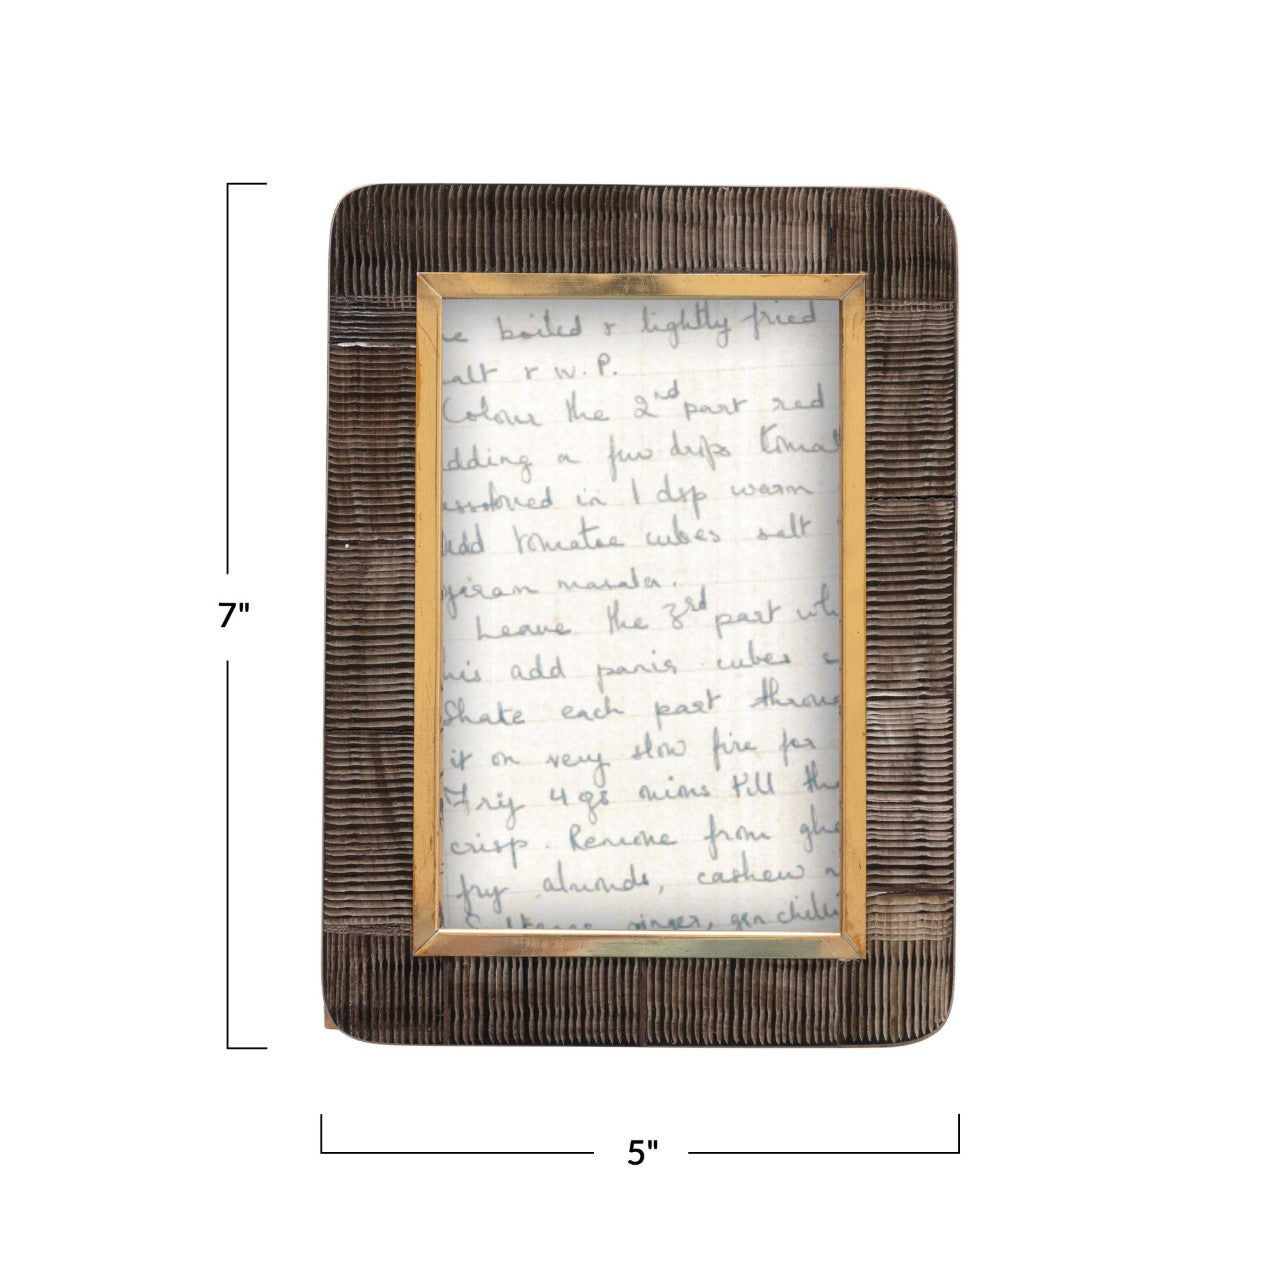 boiled & lightly fried
alt & W.P.
Colour the 2nd part red
dding a few drops tomat
issolved in 1 dsp warm
Add tomatoe cubes salt
garam masala.
Leave the 3rd part wh
his add panir cubes
Shake each part throug
it on very slow fire for
Fry 4 mins till th
crisp. Remove from ghe
fry almonds, cashew n
ginger, grn chilli
7"
5"